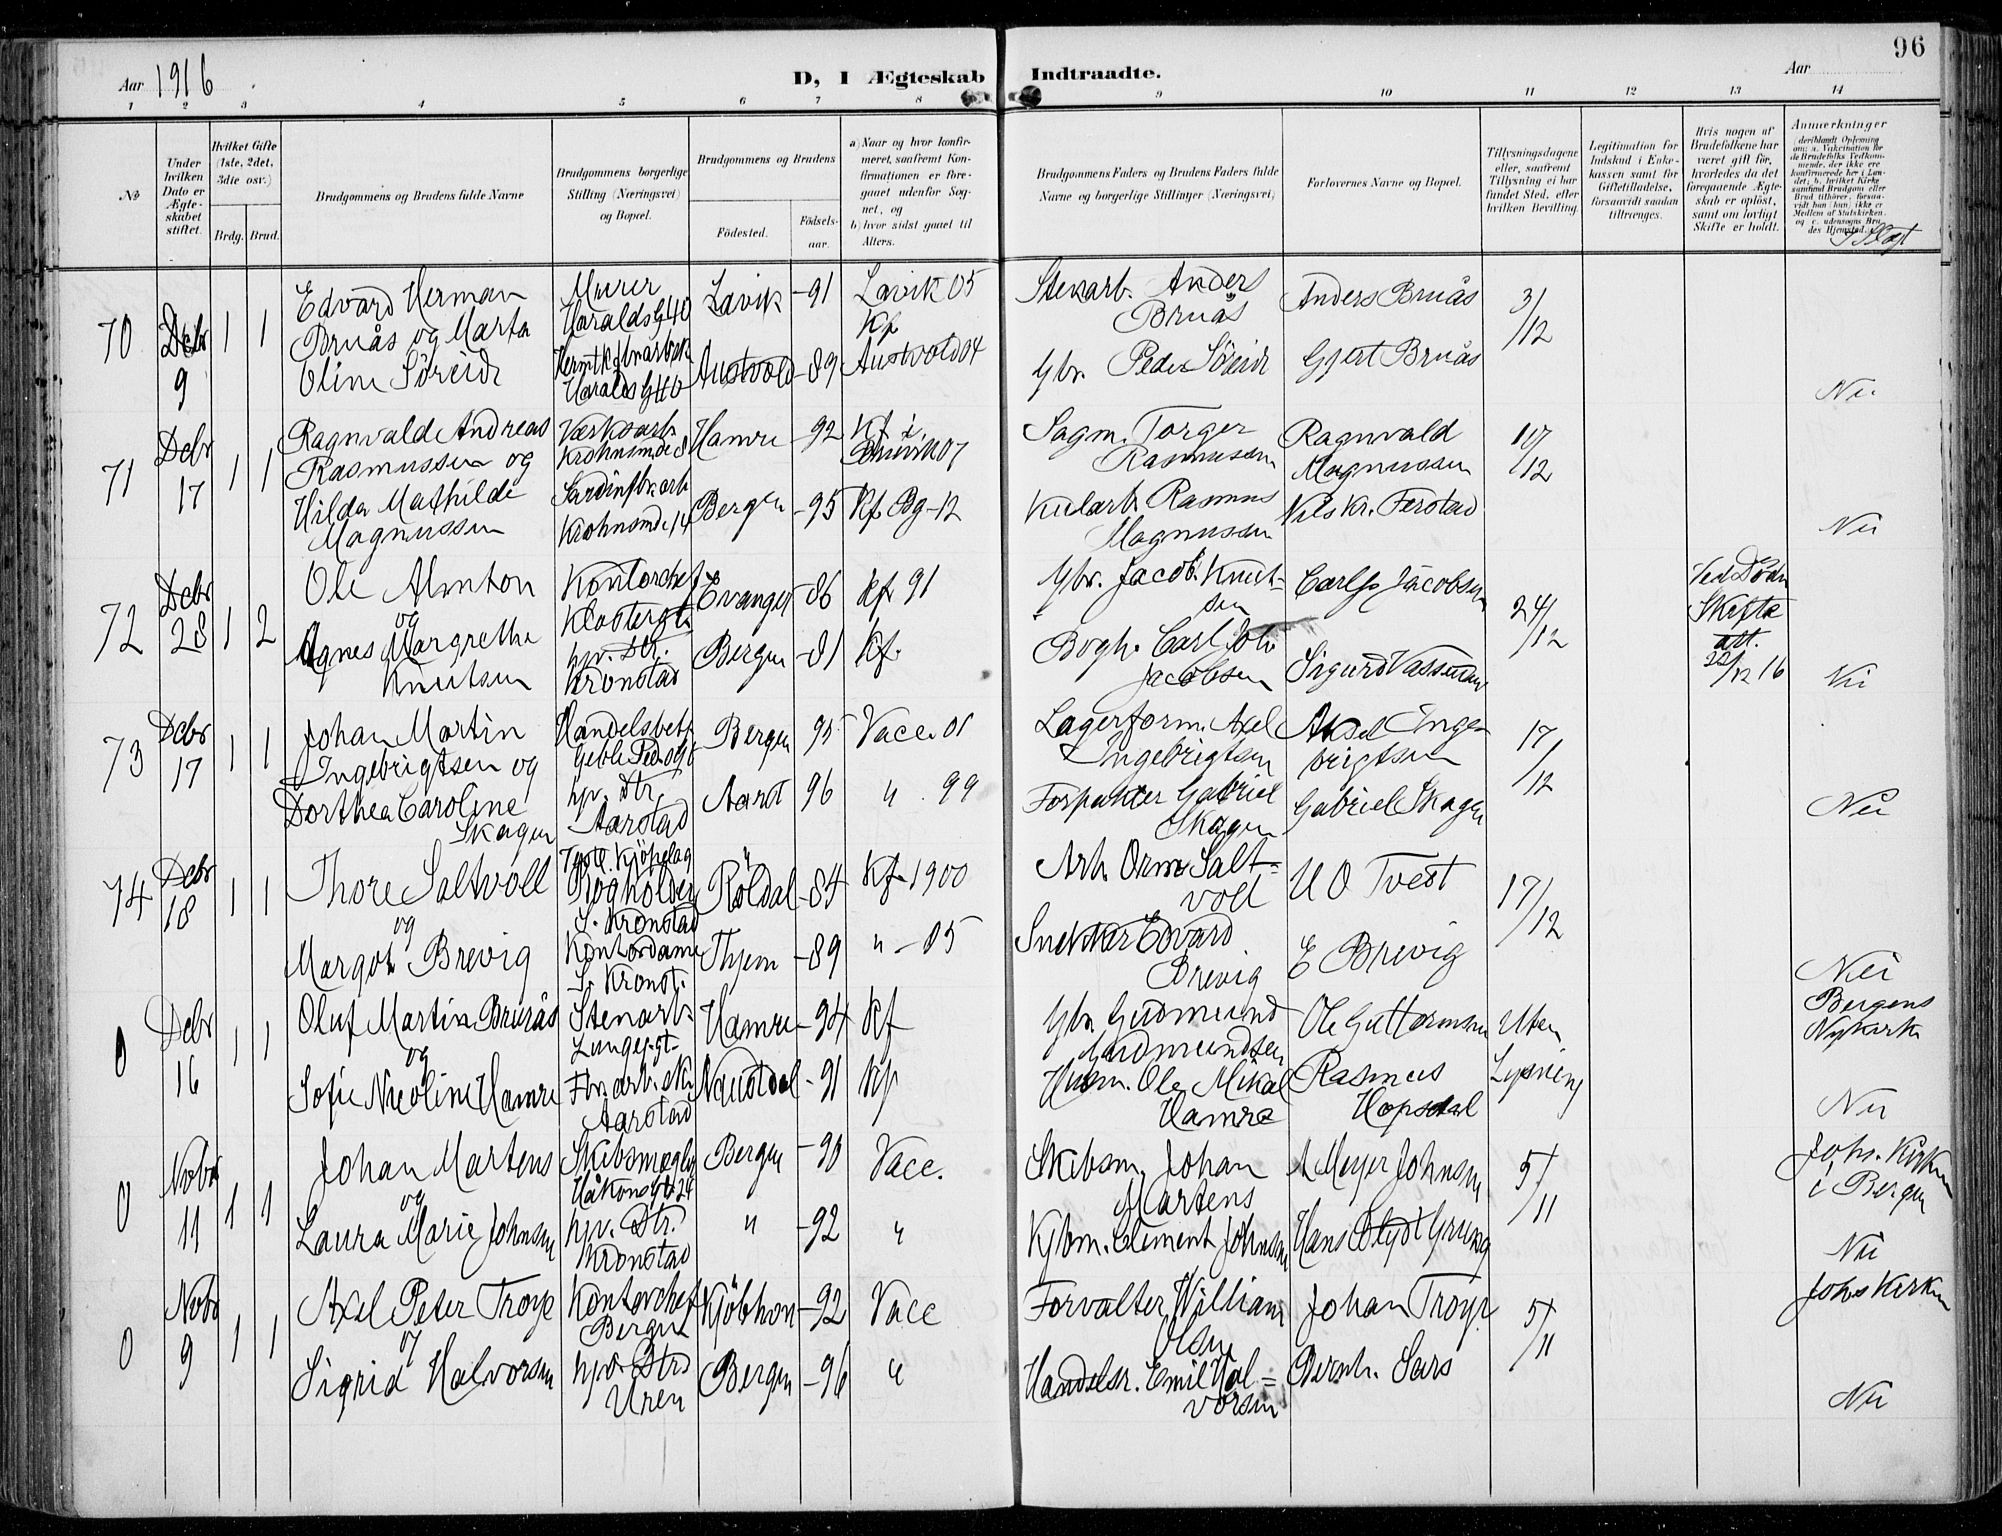 96
Aar 1916
D, I Ægteskab Indtraadte.
Aar
1 2 3 4 5 6 7 8 9 10 11 12 13 14
No
Under hvilken Dato er Ægteskabet stiftet.
Hvilket Gifte (1ste, 2det, 3die osv.)
Brdg. Brud.
Brudgommens og Brudens fulde Navne
Brudgommens borgerlige Stilling (Næringsvei) og Bopæl.
Brudgommens og Brudens
Fødested.
Fødselsaar.
a) Naar og hvor konfirmeret, saafremt Konfirmationen er foregaaet udenfor Sognet, og
b) hvor sidst gaaet til Alters.
Brudgommens Faders og Brudens Faders fulde Navne og borgerlige Stillinger (Næringsvei)
Forlovernes Navne og Bopæl.
Tillysningsdagene eller, saafremt Tillysning ei har fundet Sted, efter hvilken Bevilling.
Legitimation for Indskud i Enkekassen samt for Giftetilladelse, forsaavidt saadan tiltrænges.
Hvis nogen af Brudefolkene har været gift før, hvorledes da det foregaaende Ægteskab er opløst, samt om lovligt Skifte er holdt.
Anmerkninger
70 Dcbr 9 1 1
Edvard Herman Bruås og Marta Oline Söreide
Murer Haraldsgt 40
Haraldsgt 40
Lavik -91 Lavik 05
Kf
Austvold -89 Austvold 04
Anders Bruås
Gbr. Peder Söreide
Anders Bruås
Gjert Bruås
3/12
Nei
71 Dcbr 17 1 1
Ragnvald Andreas Rasmussen og Hilda Mathilde Magnussen
Værksarb. Krohnsmde 8
Sardinfbr.arb Krohnsmde 14
Hamre -92
Bergen -95 Kf Bg -12
Sagm. Torger Rasmussen
Kularb. Rasmus Magnussen
Ragnvald Magnussen
Nils Kr. Ferstad
10/12
Nei
72 Dcbr 28 1 2
Ole Almton og Agnes Margrethe Knutsen
Kontorchef Klostergt.
hjv. Dtr. Kronstad
Evanger -86 Kf 91
Bergen -81 Kf.
Gbr. Jacob Knutsen
Bogh. Carl Joh. Jacobsen
Carl Jacobsen
Sigurd Vassenden
24/12
Ved Död
Skifte
att.
22/12 16
Nei
73 Dcbr 17 1 1
Johan Martin Ingebrigtsen og Dorthea Caroline Skagen
Handelsbetj.
hjv. Dtr. Aarstad
Bergen 95 Vacc. 01
Aarst 96 " 99
Lagerform. Axel Ingebrigtsen
Forpakter Gabriel Skagen
Aksel Ingebrigtsen
Gabriel Skagen
17/12
Nei
74 Dcbr 18 1 1
Thore Saltvoll og Margot Brevig
Kjöpelag
Bogholder
S. Kronstad
Kontordame
S. Kronst.
Röldal -84 Kf 1900
Thjem -89 " -05
Arb. Orm Saltvoll
Snekker Edvard Brevig
U O Tvest
E Brevig
17/12
Nei
0 Dcbr 16 1 1
Oluf Martin Brunås og Sofie Nicoline Hamre
Stenarb. Lungeg.gt.
Aarstad
Hamre -94 Kf
Naustdal -91 Kf
Gbr. Gudmund Gudmundsen
Husm. Ole Mikal Hamre
Ole Guttormsen
Rasmus Hopsdal
Uten Lysning
Bergens Nykirk
Nei
0 Novbr 11 1 1
Johan Martens og Laura Marie Johnsen
Skibsmægler Håkonsgt 24
hjv. Dtr. Kronstad
Bergen -90 Vacc.
" -92 "
Skibsm. Johan Martens
Kjbm. Clement Johnsen
A Meyer Johnsen
Hans Blydt Grung
5/11
Joh. Kirken i Bergen
Nei
0 Novbr 9 1 1
Axel Peter Troye og Sigrid Halvorsen
Kontorchef Bergen
hjv. Dtr. Uren
Kjöbhvn -92 Vacc
Bergen -96 "
Forvalter William Olsen
Handelsr. Emil Halvorsen
Johan Troye
Bernh. Sars
5/11
Johs Kirken
Nei